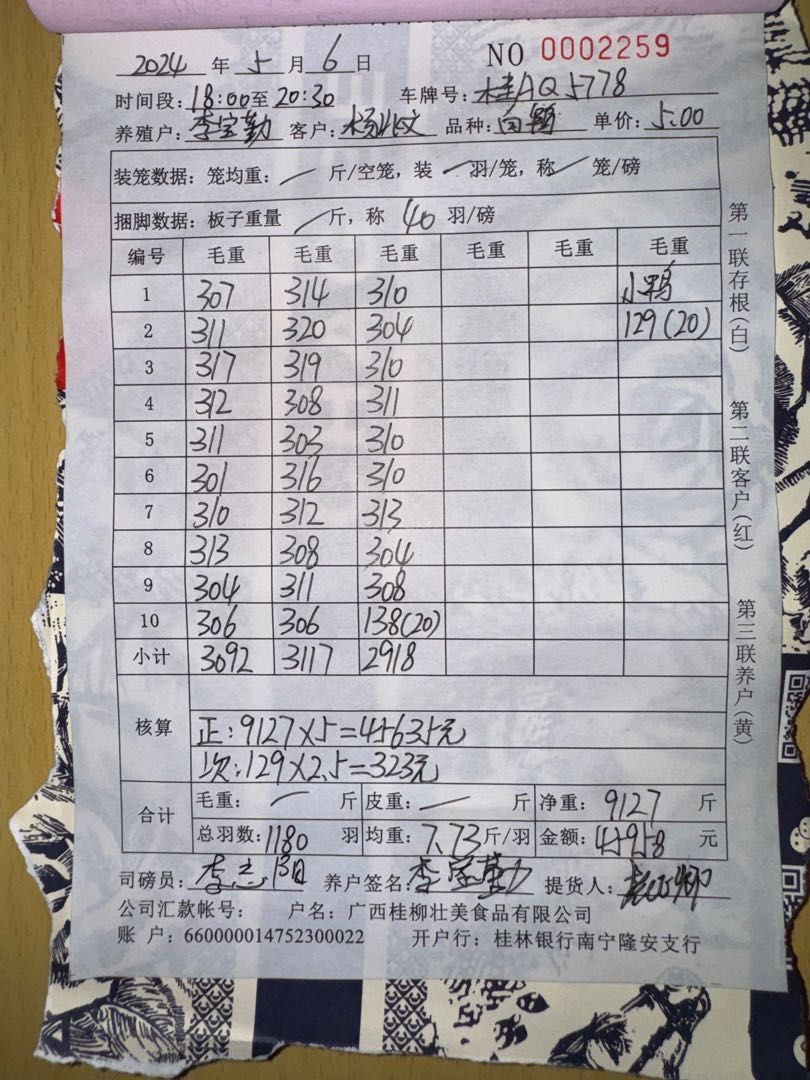 2024 年 5 月 6 日 NO 0002259
时间段: 18:00至 20:30 车牌号: 桂AQ5778
养殖户: 李宝勤 客户: 杨 文 品种: 单价: 5.00
装笼数据: 笼均重: / 斤/空笼, 装 / 羽/笼, 称 / 笼/磅
捆脚数据: 板子重量 / 斤, 称 40 羽/磅
编号 毛重 毛重 毛重 毛重 毛重 毛重
1 307 314 310 小鸭
2 311 320 304 129(20)
3 317 319 310
4 312 308 311
5 311 303 310
6 301 316 310
7 310 312 313
8 313 308 304
9 304 311 308
10 306 306 138(20)
小计 3092 3117 2918
核算
正: 9127×5=45635元
次: 129×2.5=323元
合计 毛重: / 斤 皮重: / 斤 净重: 9127 斤
总羽数: 1180 羽 均重: 7.73 斤/羽 金额: 45958 元
司磅员: 李志阳 养户签名: 李宝勤 提货人:
公司汇款帐号: 户名: 广西桂柳壮美食品有限公司
账 户: 660000014752300022 开户行: 桂林银行南宁隆安支行
第一联存根(白)
第二联客户(红)
第三联养户(黄)